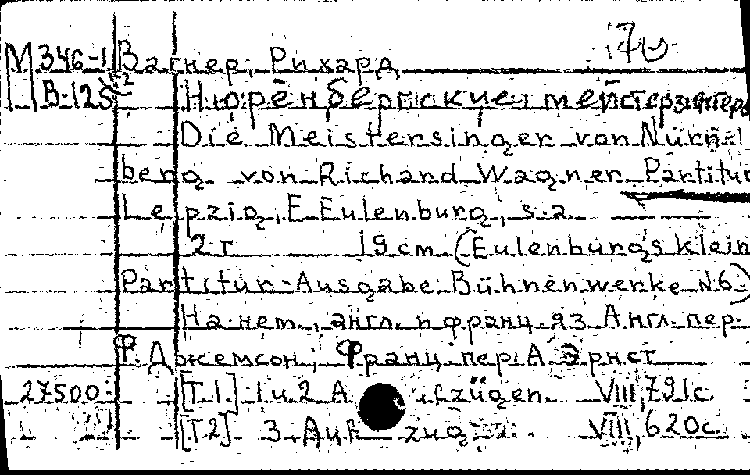 70
М346-1 Вагнер, Рихард
В-125 Нюренбергские мейстерзингеры
Die Meistersinger von Nürn-
berg von Richard Wagner Partitur
Leipzig, E Eulenburg, s.a
2 т 19 cm (Eulenburgs klein
Partitur-Ausgabe. Bühnenwerke №6)
На нем., англ. и франц. яз. Англ. пер.
Ф. Джемсон, Франц. пер. А. Эрнст
27500 [Т 1.] 1 u. 2 A ufzügen. VIII, 791с
[Т 2] 3. Auf zug VIII, 620с.